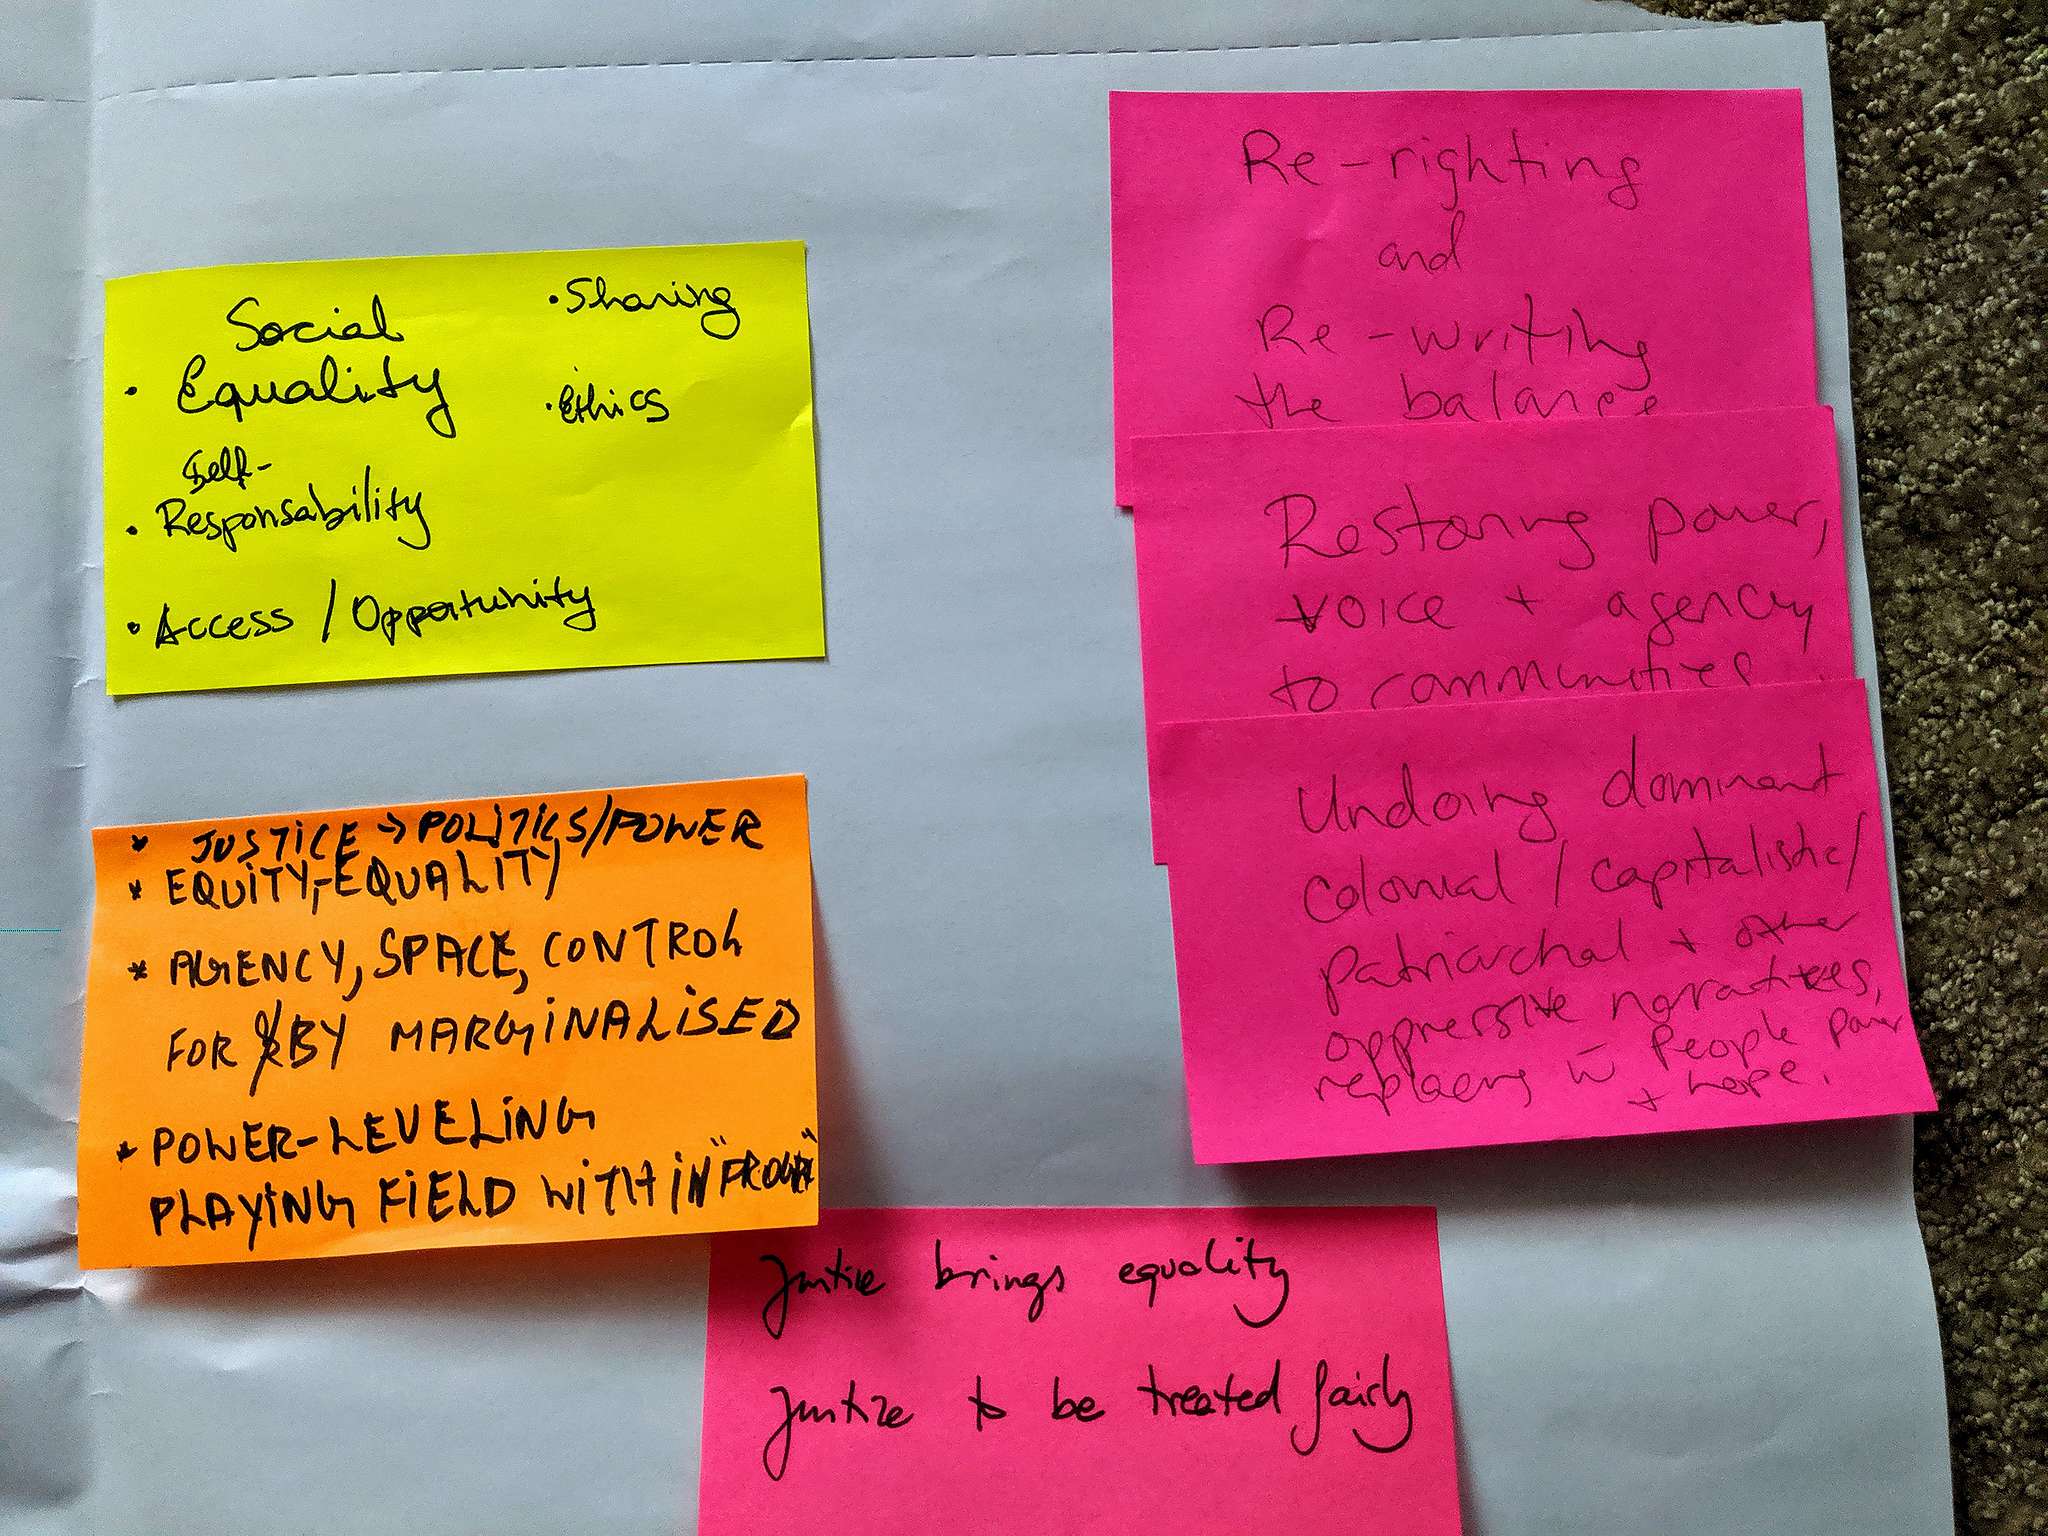 Social
• Equality
Self-
• Responsability
• Access / Opportunity
• Sharing
• Ethics
* JUSTICE → POLITICS/POWER
* EQUITY, EQUALITY
* AGENCY, SPACE, CONTROL
FOR & BY MARGINALISED
* POWER-LEVELING
PLAYING FIELD WITH IN
Re-righting
and
Re-writing
the balance
Restoring power,
voice + agency
to communities
Undoing dominant
colonial / capitalistic/
patriarchal + other
oppressive narratives,
replacing w People power
+ hope.
Justice brings equality
Justice to be treated fairly